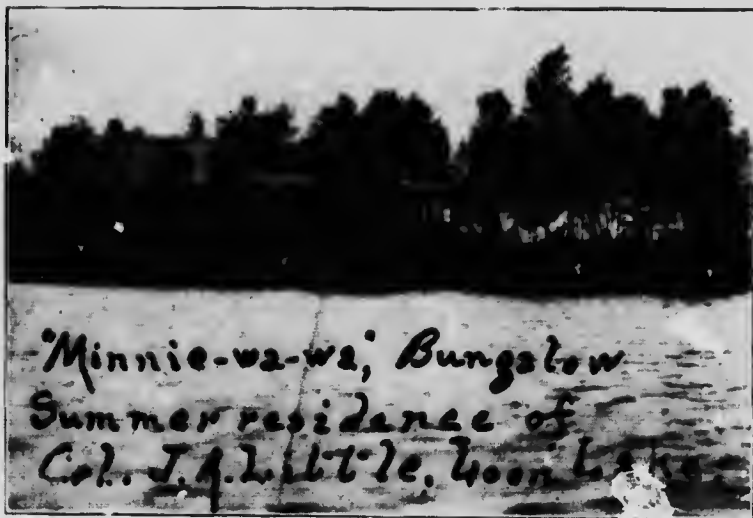 "Minnie-wa-wa", Bungalow
Summer residence of
Col. J. A. Little, Loon Lake